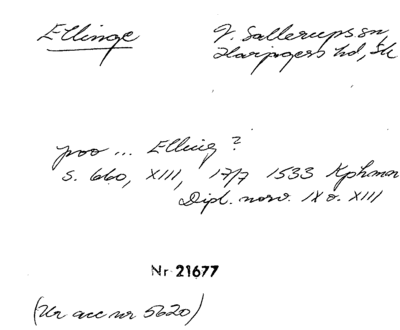 Ellinge V. Sallerups sn,
Harjagers hd, Sk
poo ... Elling ?
S. 660, XIII, 17/7 1533 Kphmn
Dipl. norv. IX o. XIII
Nr 21677
(Ur acc nr 5620)